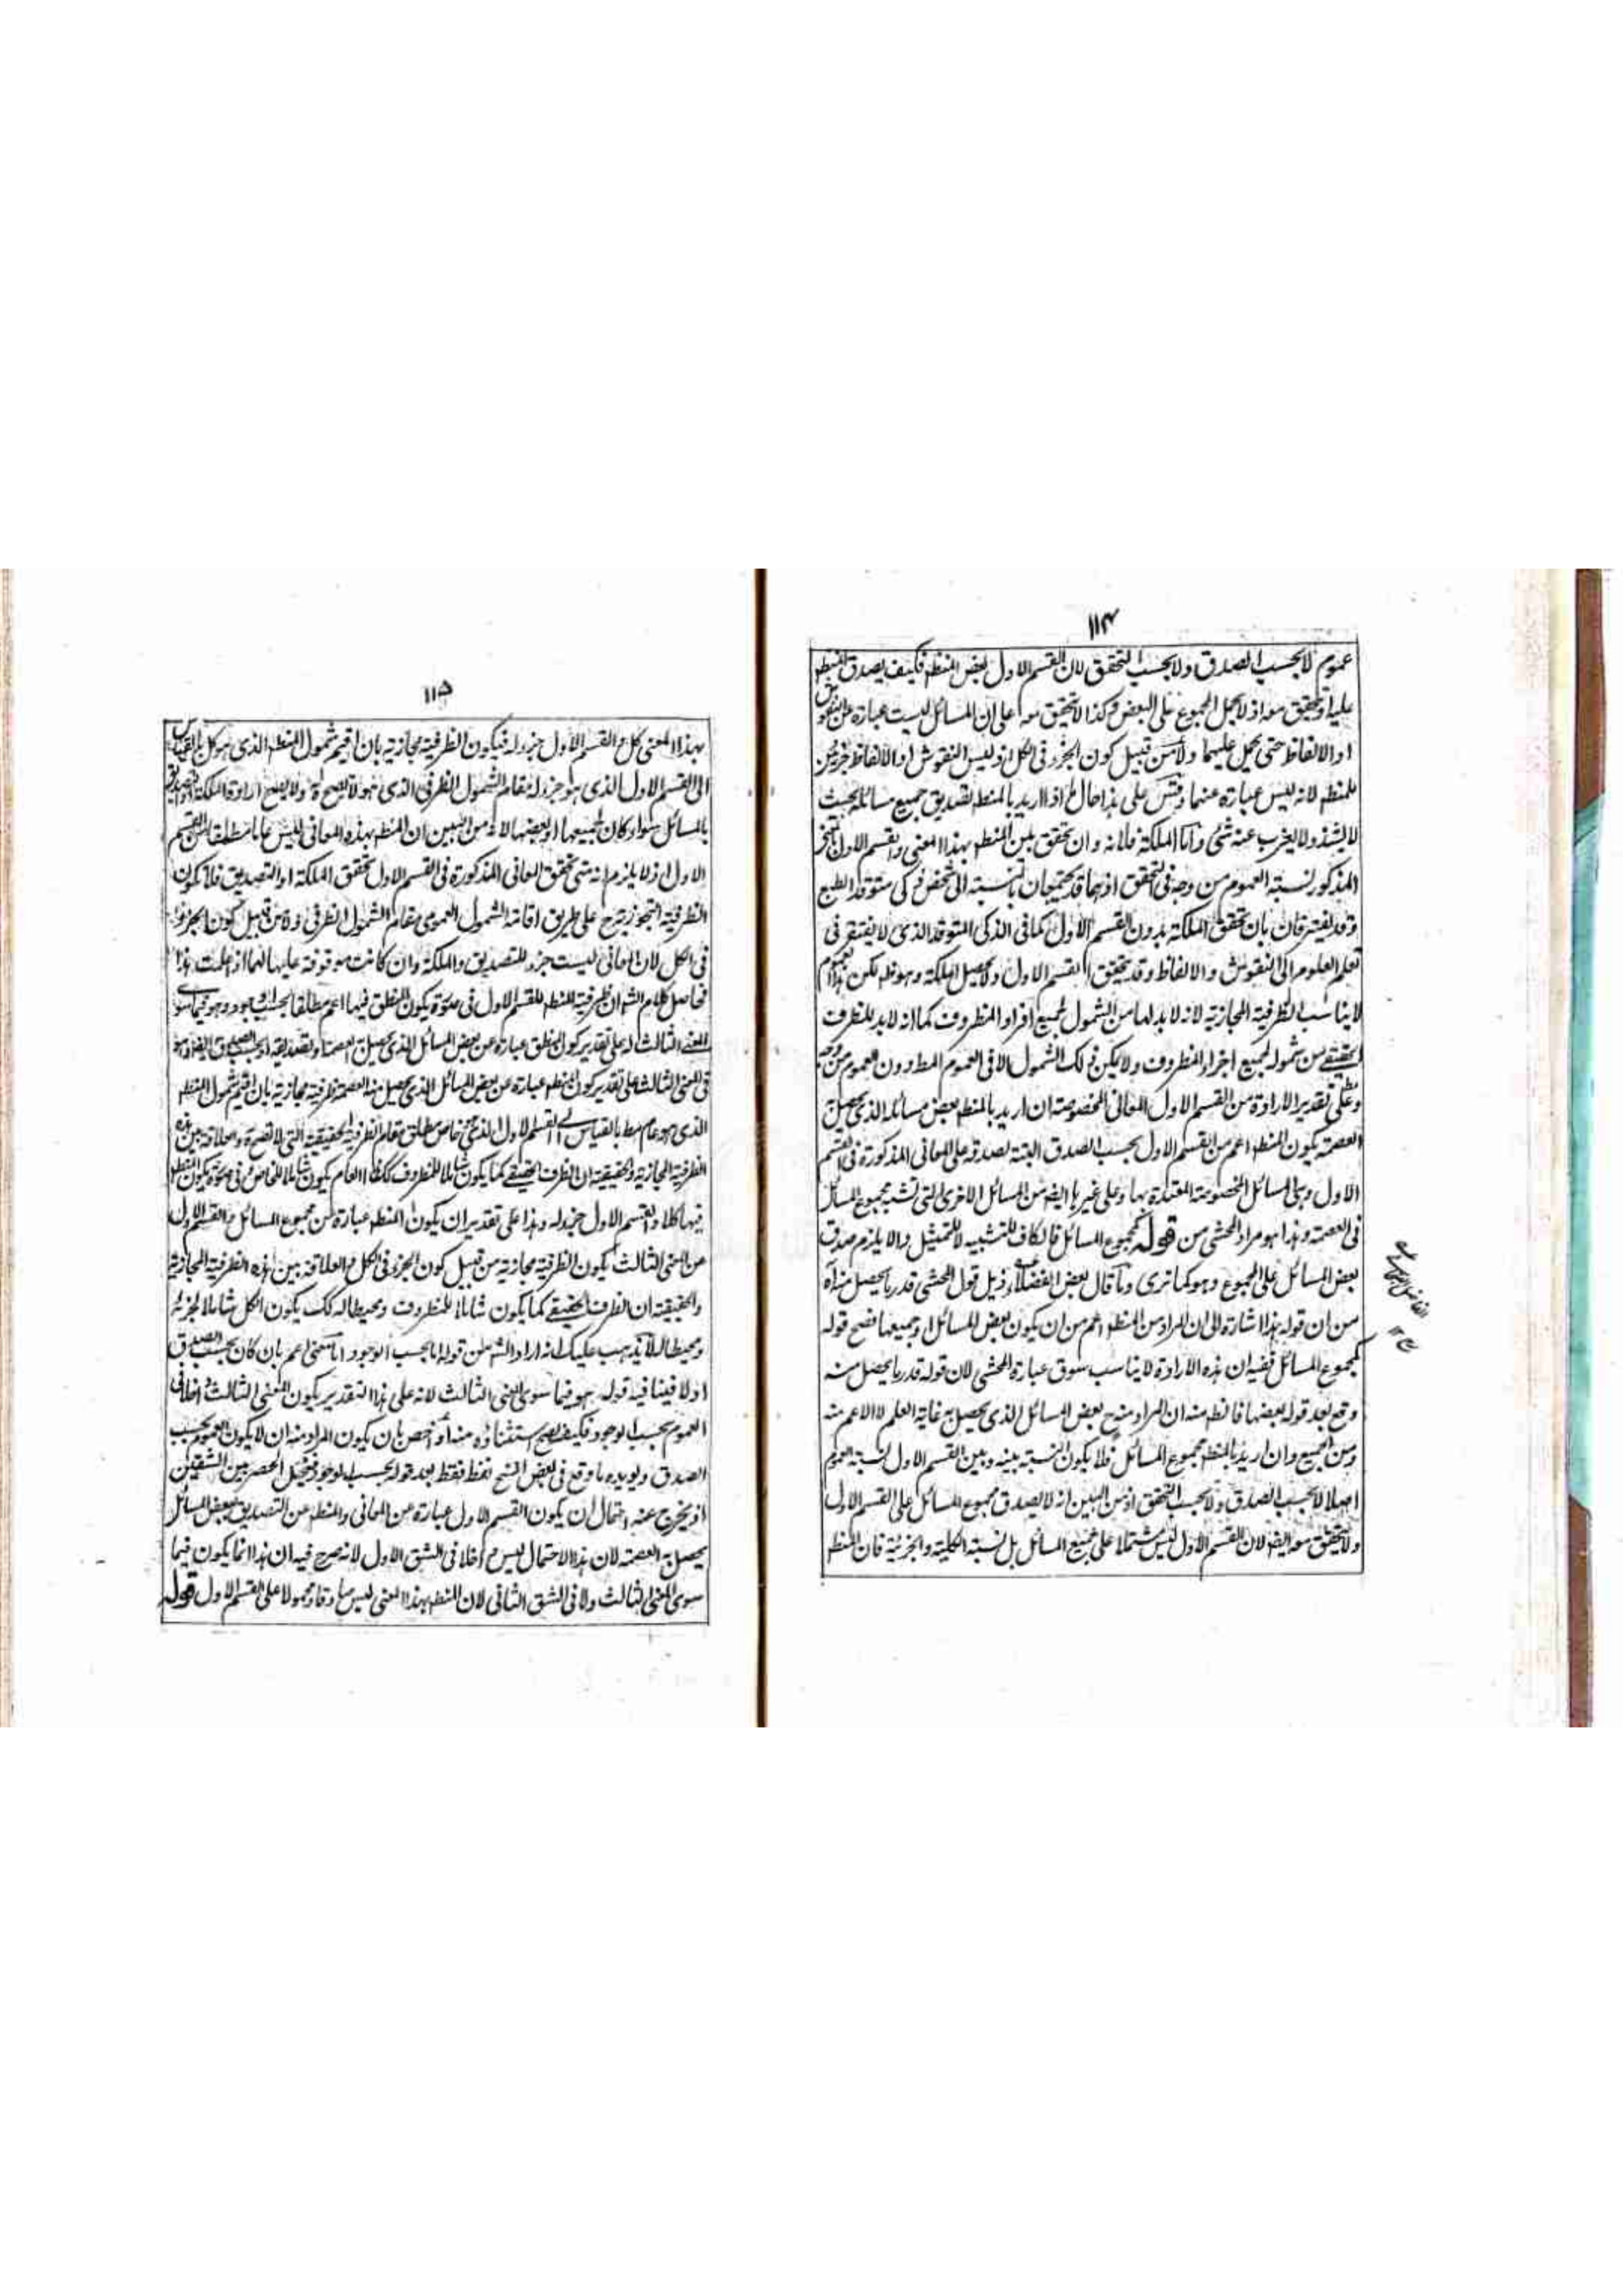 ١١٤
عموم لا بحسب الصدق ولا بحسب التحقق لان القسم الاول بعض المنطق فكيف يصدق المنطق
عليه او يتحقق معه اذ لا يحمل المجموع على البعض وكذا لا يتحقق معه على ان المسائل ليست عبارة عن النقوش
او الالفاظ حتى يحمل عليهما ولا من قبيل كون الجزء فى الكل اذ ليس النقوش او الالفاظ جزئين
للمنطق لانه ليس عبارة عنهما وقس على هذا حال ما اذا اريد بالمنطق تصديق جميع مسائله بحيث
لا يشذ ولا يعزب عنه شئ واما الملكة فلانه وان تحقق بين المنطق بهذا المعنى والقسم الاول بالنحو
المذكور نسبة العموم من وجه فى التحقق اذ هما قد يجتمعان بالنسبة الى شخص ذكى متوقد الطبع
وقد يفترقان بان تحقق الملكة بدون القسم الاول كما فى الذكى المتوقد الذى لا يفتقر فى
تعلم العلوم الى النقوش والالفاظ وقد يتحقق القسم الاول ولا يحصل الملكة وهو ظ لكن هذا العموم
لا يناسب الظرفية المجازية لانه لا بد لها من الشمول لجميع افراد المظروف كما انه لا بد للظرف
الحقيقى من شموله لجميع اجزاء المظروف ولا يكون ذلك الشمول الا فى العموم المط دون العموم من وجه
وعلى تقدير الارادة من القسم الاول المعانى المخصوصة ان اريد بالمنطق بعض مسائله الذى يحصل به
العصمة يكون المنطق اعم من القسم الاول بحسب الصدق البتة لصدقه على المعانى المذكورة فى القسم
الاول وهى المسائل المخصوصة المعتدة بها وعلى غيرها ايضا من المسائل الاخرى التى تشبه مجموع المسائل
فى العصمة وهذا هو مراد المحشى من قوله كمجموع المسائل فالكاف للتشبيه لا للتمثيل والا يلزم صدق
بعض المسائل على المجموع وهو كما ترى وما قال بعض الفضلاء ذيل قول المحشى قدر ما يحصل منه اه
من ان قوله هذا اشارة الى ان المراد من المنطق اعم من ان يكون بعض المسائل او جميعها فصح قوله
كمجموع المسائل ففيه ان هذه الارادة لا يناسب سوق عبارة المحشى لان قوله قدر ما يحصل منه
وقع بعد قوله بعضها فالظ منه ان المراد منه ح بعض المسائل الذى يحصل به غاية العلم لا الاعم منه
ومن الجميع وان اريد بالمنطق مجموع المسائل فلا يكون النسبة بينه وبين القسم الاول نسبة العموم
اصلا لا بحسب الصدق ولا بحسب التحقق اذ من البين انه لا يصدق مجموع المسائل على القسم الاول
ولا يتحقق معه ايضا لان القسم الاول ليس مشتملا على جميع المسائل بل نسبة الكلية والجزئية فان المنطق
١١٥
بهذا المعنى كل والقسم الاول جزء له فيكون الظرفية مجازية بان اقيم شمول المنطق الذى هو كل بالقياس
الى القسم الاول الذى هو جزء له مقام الشمول الظرفى الذى هو ولا يصح ارادة الملكة او التصديق
بالمسائل سواء كان بجميعها او بعضها لانه من البين ان المنطق بهذه المعانى ليس عاما مطلقا من القسم
الاول اذ لا يلزم انه متى تحقق المعانى المذكورة فى القسم الاول تحقق الملكة او التصديق فلا يكون
الظرفية التجوزية ح على طريق اقامة الشمول العمومى مقام الشمول الظرفى ولا من قبيل كون الجزء
فى الكل لان المعانى ليست جزء للتصديق والملكة وان كانت موقوفة عليها لهما اذا علمت هذا
فحاصل كلام الش ان ظرفية المنطق للقسم الاول فى صورة يكون المنطق فيها اعم مطلقا بحسب الوجود وهو فيما سوى
المعنى الثالث له على تقدير كون المنطق عبارة عن بعض المسائل الذى يحصل به العصمة او تصديقه او بحسب الصدق ايضا وهو
فى المعنى الثالث على تقدير كون المنطق عبارة عن بعض المسائل الذى يحصل منه العصمة ظرفية مجازية بان اقيم شمول المنطق
الذى هو عام مط بالقياس الى القسم الاول الذى هو خاص مطلق مقام الظرفية الحقيقية التى والعلاقة بين هذه
الظرفية المجازية والحقيقية ان الظرف الحقيقى كما يكون شاملا للمظروف كذلك العام يكون شاملا للخاص وفى صورة يكون المنطق
فيها كلا والقسم الاول جزء له وهذا على تقدير ان يكون المنطق عبارة عن مجموع المسائل والقسم الاول
من المعنى الثالث يكون الظرفية مجازية من قبيل كون الجزء فى الكل والعلاقة بين هذه الظرفية المجازية
والحقيقية ان الظرف الحقيقى كما يكون شاملا للمظروف ومحيطا له كك يكون الكل شاملا لجزئه
ومحيطا له لا يذهب عليك انه اراد الش من قوله اما بحسب الوجود اما معنى اعم بان كان بحسب الصدق
اولا فينافيه قوله هو فيما سوى المعنى الثالث لانه على هذا التقدير يكون المعنى الثالث داخلا فى
العموم بحسب الوجود فكيف يصح استثناؤه منه او اخص بان يكون المراد منه ان لا يكون العموم بحسب
الصدق ويؤيده ما وقع فى بعض النسخ لفظ فقط بعد قوله بحسب الوجود فيختل الحصر بين الشقين
اذ يخرج عنه احتمال ان يكون القسم الاول عبارة عن المعانى والمنطق عن التصديق ببعض المسائل
يحصل به العصمة لان هذا الاحتمال ليس داخلا فى الشق الاول لانه صرح فيه ان هذا انما يكون فيما
سوى المعنى الثالث ولا فى الشق الثانى لان المنطق بهذا المعنى ليس صادقا ومحمولا على القسم الاول قوله